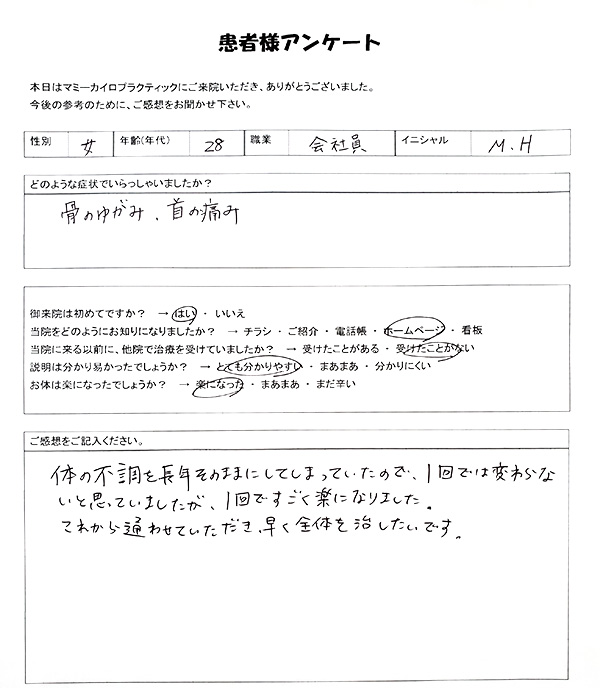 患者様アンケート
本日はマミーカイロプラクティックにご来院いただき、ありがとうございました。
今後の参考のために、ご感想をお聞かせ下さい。
性別 女 年齢(年代) 28 職業 会社員 イニシャル M.H
どのような症状でいらっしゃいましたか？
骨のゆがみ、首の痛み
御来院は初めてですか？ → はい ・ いいえ
当院をどのようにお知りになりましたか？ → チラシ ・ ご紹介 ・ 電話帳 ・ ホームページ ・ 看板
当院に来る以前に、他院で治療を受けていましたか？ → 受けたことがある ・ 受けたことがない
説明は分かり易かったでしょうか？ → とても分かりやすい ・ まあまあ ・ 分かりにくい
お体は楽になったでしょうか？ → 楽になった ・ まあまあ ・ まだ辛い
ご感想をご記入ください。
体の不調を長年そのままにしてしまっていたので、1回では変わらな
いと思っていましたが、1回ですごく楽になりました。
これから通わせていただき、早く全体を治したいです。